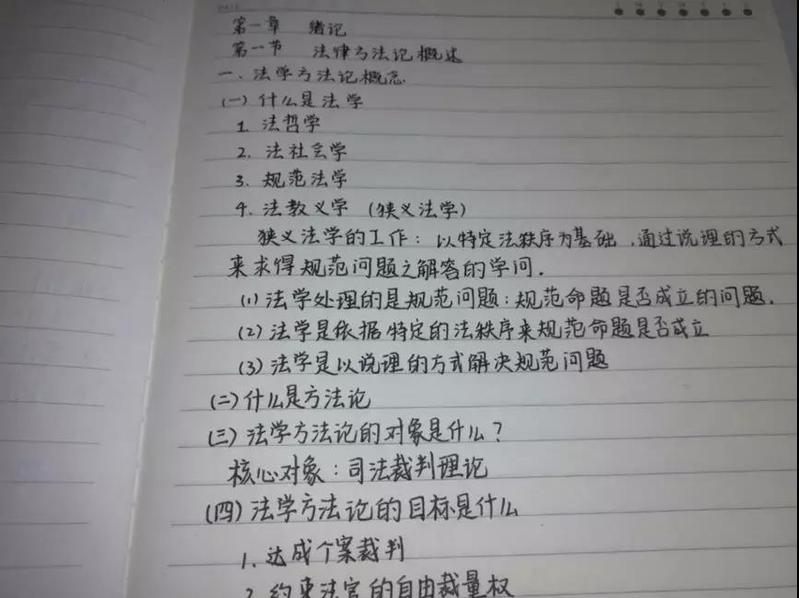 第一章 绪论
第一节 法律方法论概述
一、法学方法论概念
(一)什么是法学
1. 法哲学
2. 法社会学
3. 规范法学
4. 法教义学 (狭义法学)
狭义法学的工作:以特定法秩序为基础,通过说理的方式
来求得规范问题之解答的学问.
(1) 法学处理的是规范问题:规范命题是否成立的问题.
(2) 法学是依据特定的法秩序来规范命题是否成立
(3) 法学是以说理的方式解决规范问题
(二)什么是方法论
(三)法学方法论的对象是什么?
核心对象:司法裁判理论
(四)法学方法论的目标是什么
1. 达成个案裁判
2. 约束法官的自由裁量权